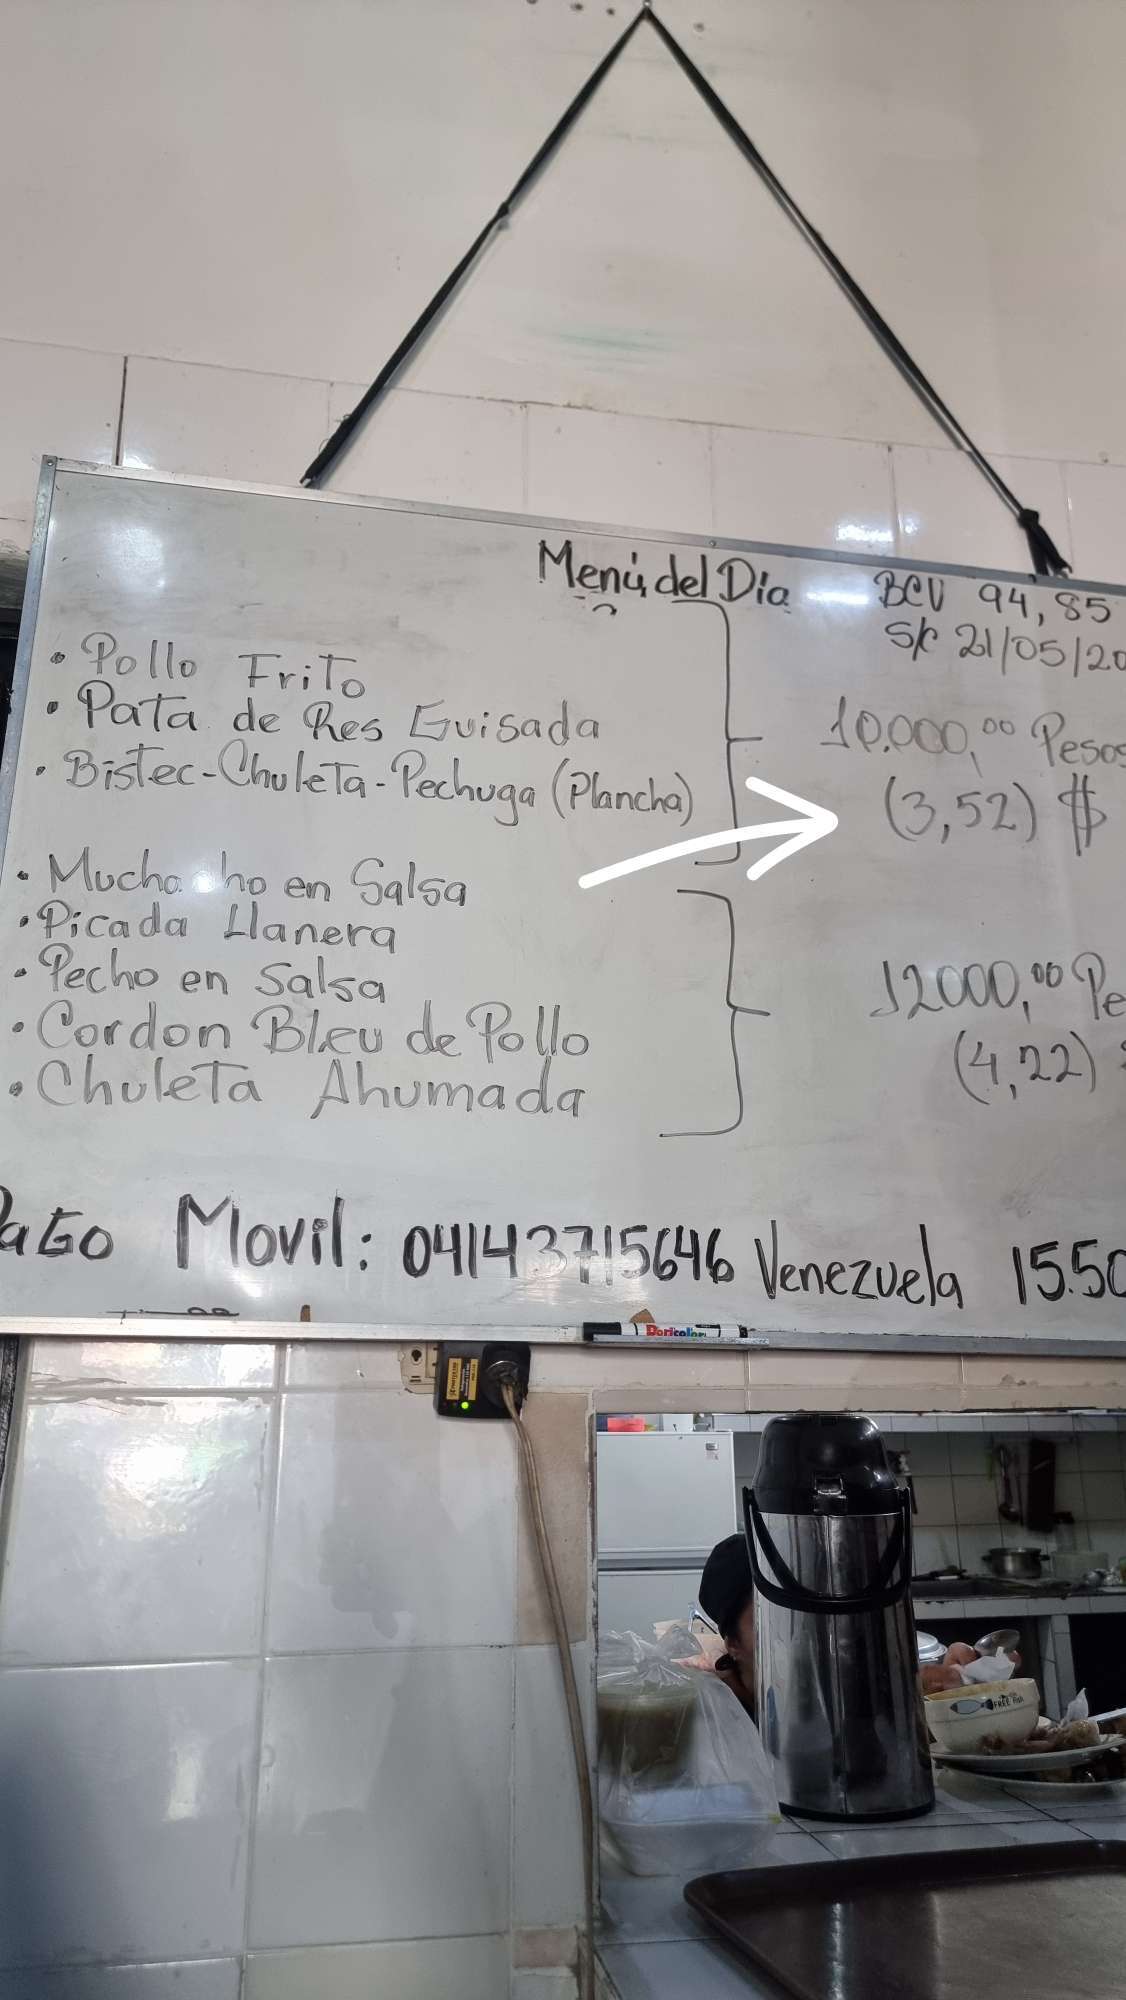 Menú del Día
BCV 94,85
S/C 21/05/20
• Pollo Frito
• Pata de Res Guisada
• Bistec-Chuleta-Pechuga (Plancha)
10.000,00 Pesos
(3,52) $
• Muchacho en Salsa
• Picada Llanera
• Pecho en Salsa
• Cordon Bleu de Pollo
• Chuleta Ahumada
12000,00 Pe
(4,22)
Pago Movil: 04143715646 Venezuela 15.50
FREE Fish